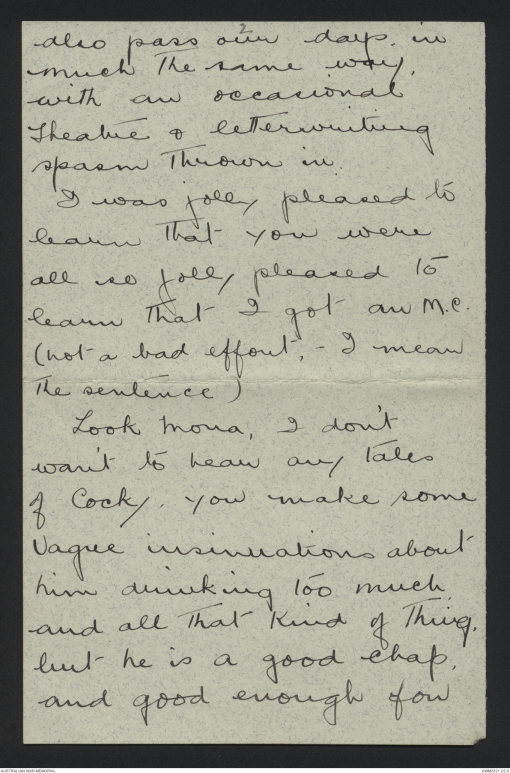 2
also pass our days in
much the same way,
with an occasional
Theatre & letterwriting
spasm thrown in.
I was jolly pleased to
learn that you were
all so jolly pleased to
learn that I got an M.C.
(not a bad effort, - I mean
the sentence)
Look Mona, I don't
want to hear any tales
of Cocky. You make some
vague insinuations about
him drinking too much
and all that kind of thing,
but he is a good chap,
and good enough for
AUSTRALIAN WAR MEMORIAL